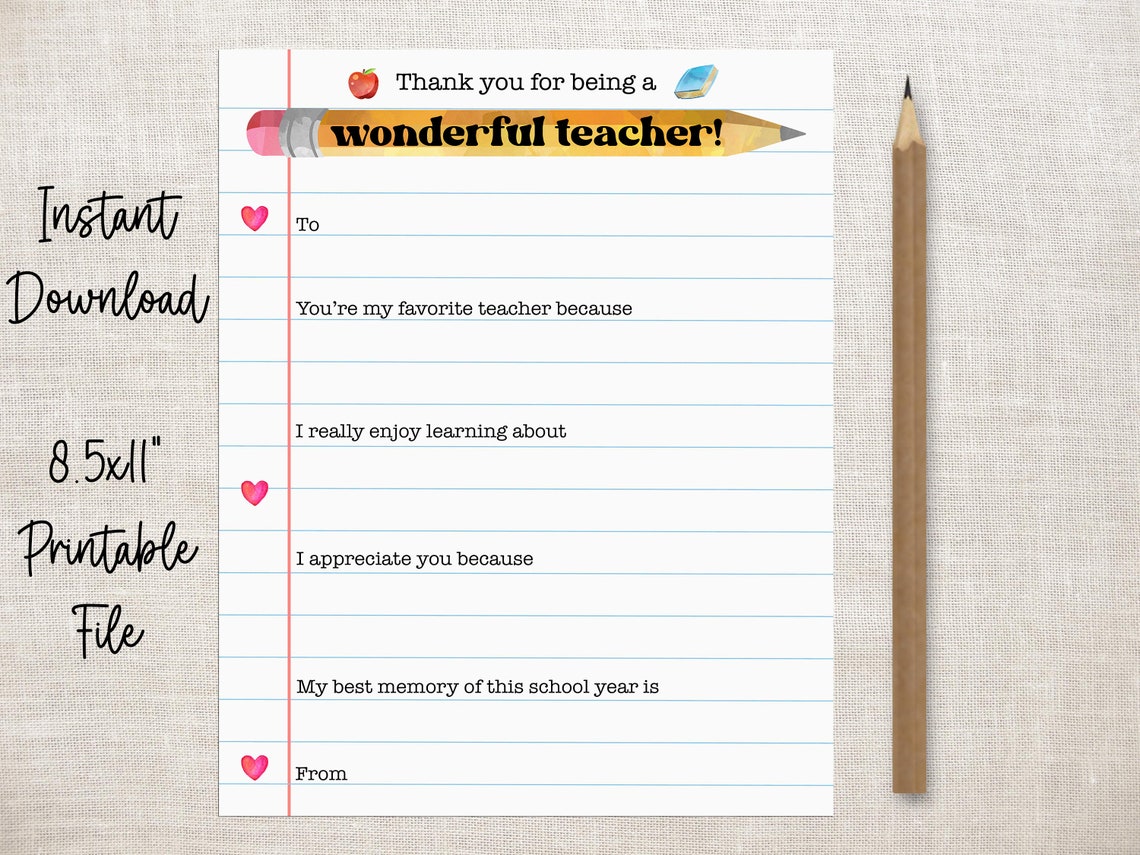 Thank you for being a
wonderful teacher!
To
You're my favorite teacher because
I really enjoy learning about
I appreciate you because
My best memory of this school year is
From
Instant
Download
8.5x11"
Printable
File